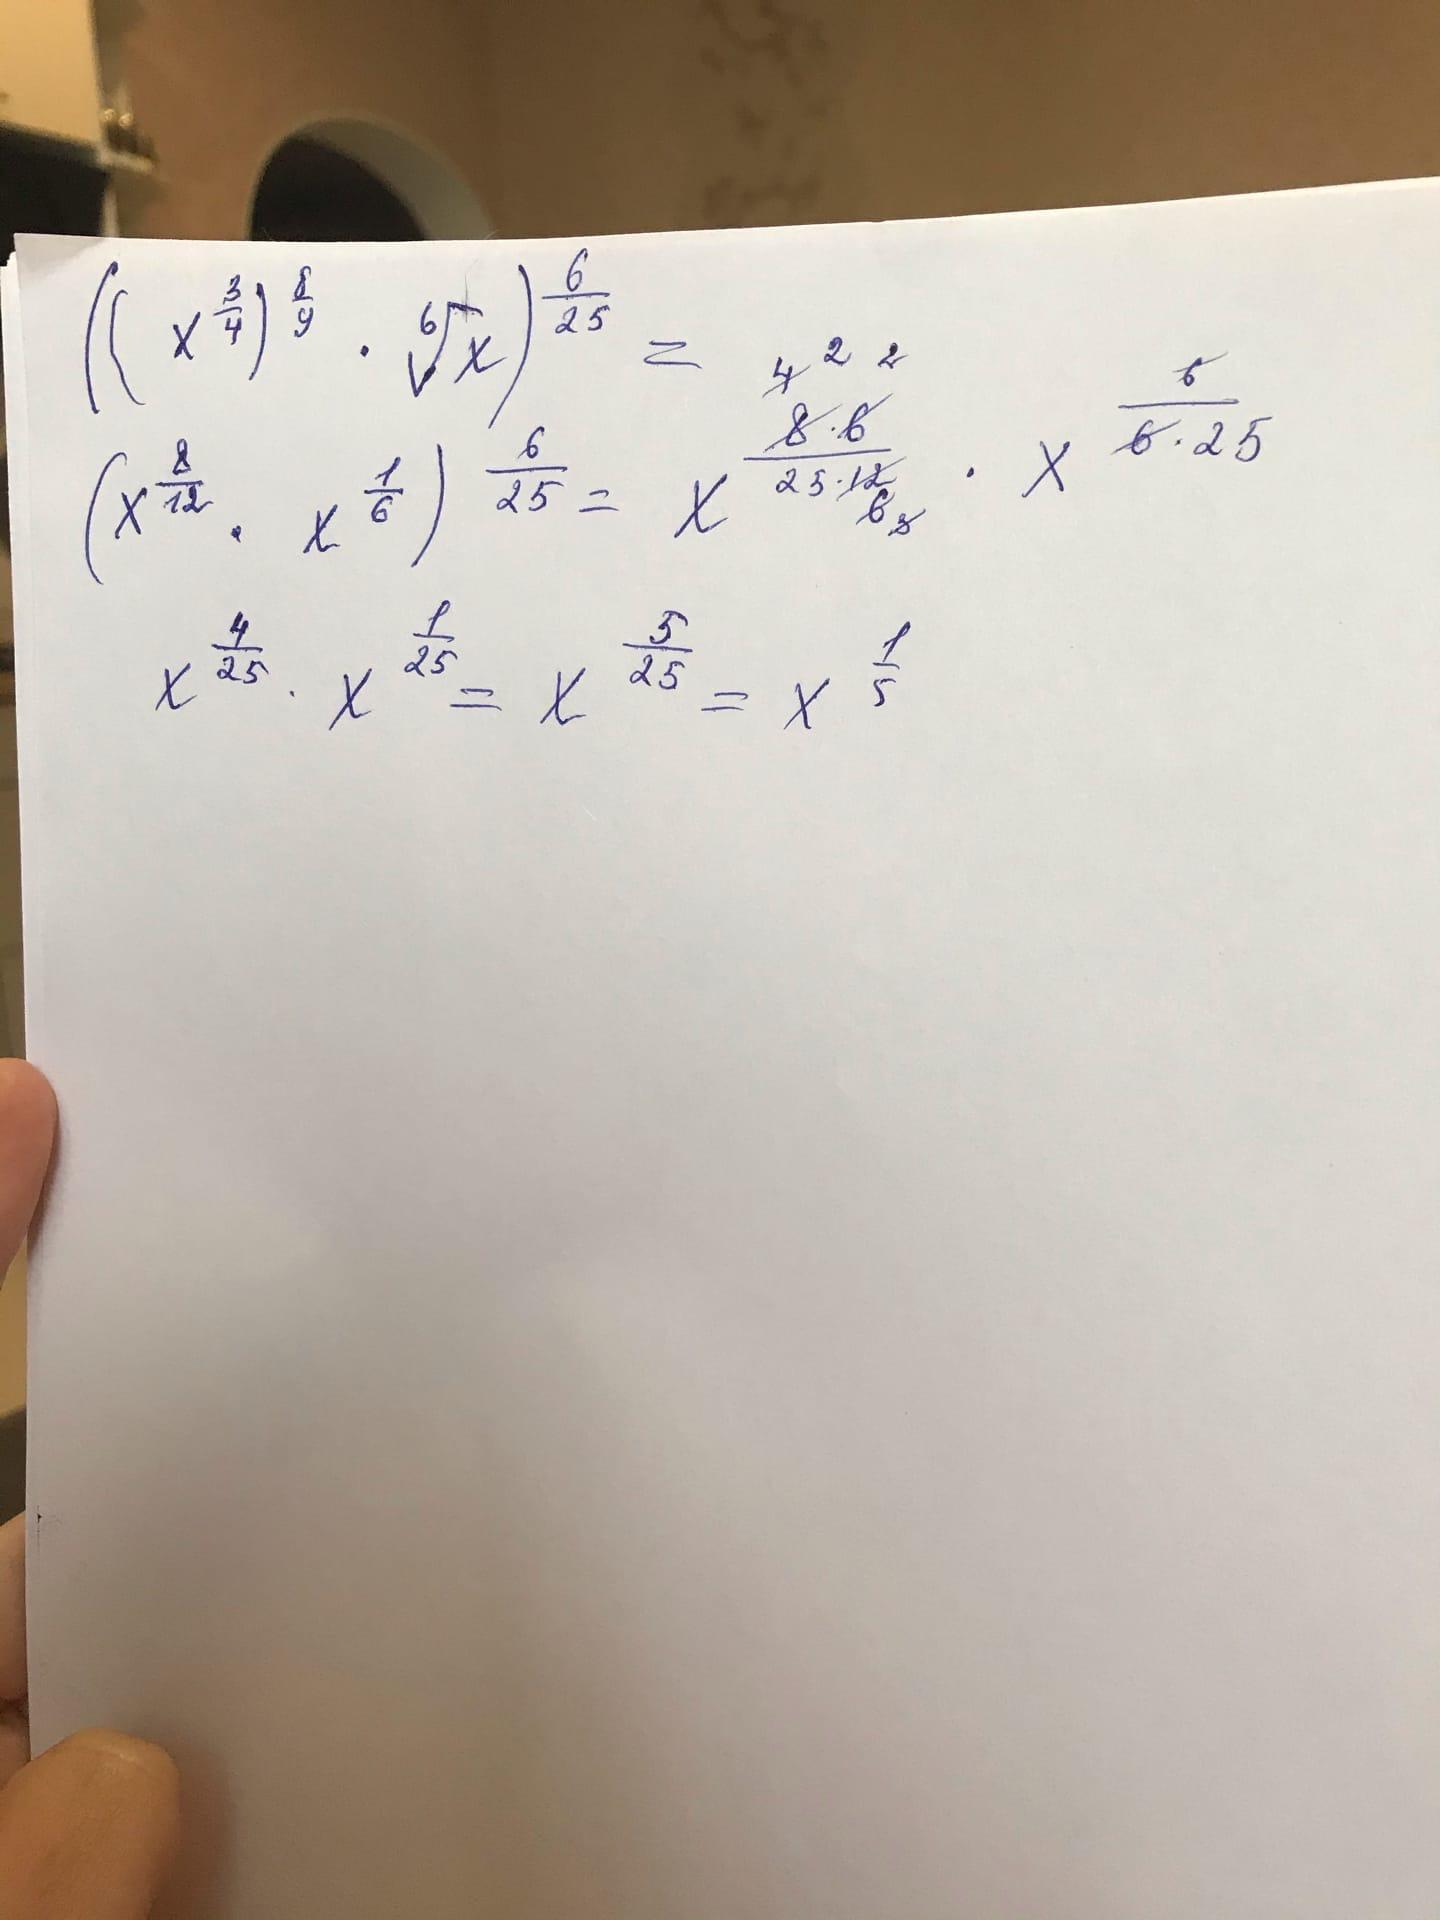 ((x^(3/4))^(8/9) · ⁶√x)^(6/25) =
(x^(8/12) · x^(1/6))^(6/25) = x^(8·6/25·12) · x^(6/6·25)
x^(4/25) · x^(1/25) = x^(5/25) = x^(1/5)